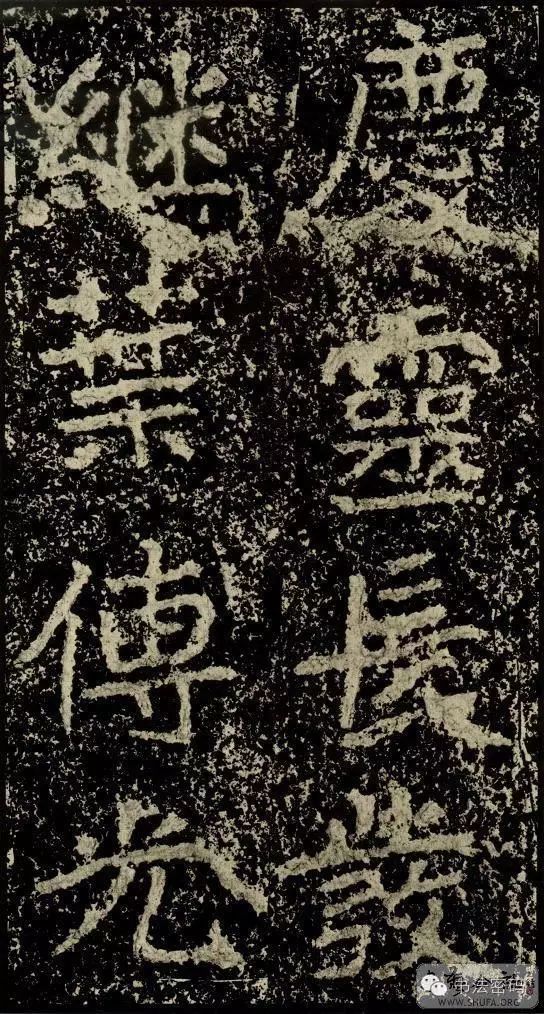 慶靈長發
继葉傅光
书法密码
WWW.SHUFA.ORG